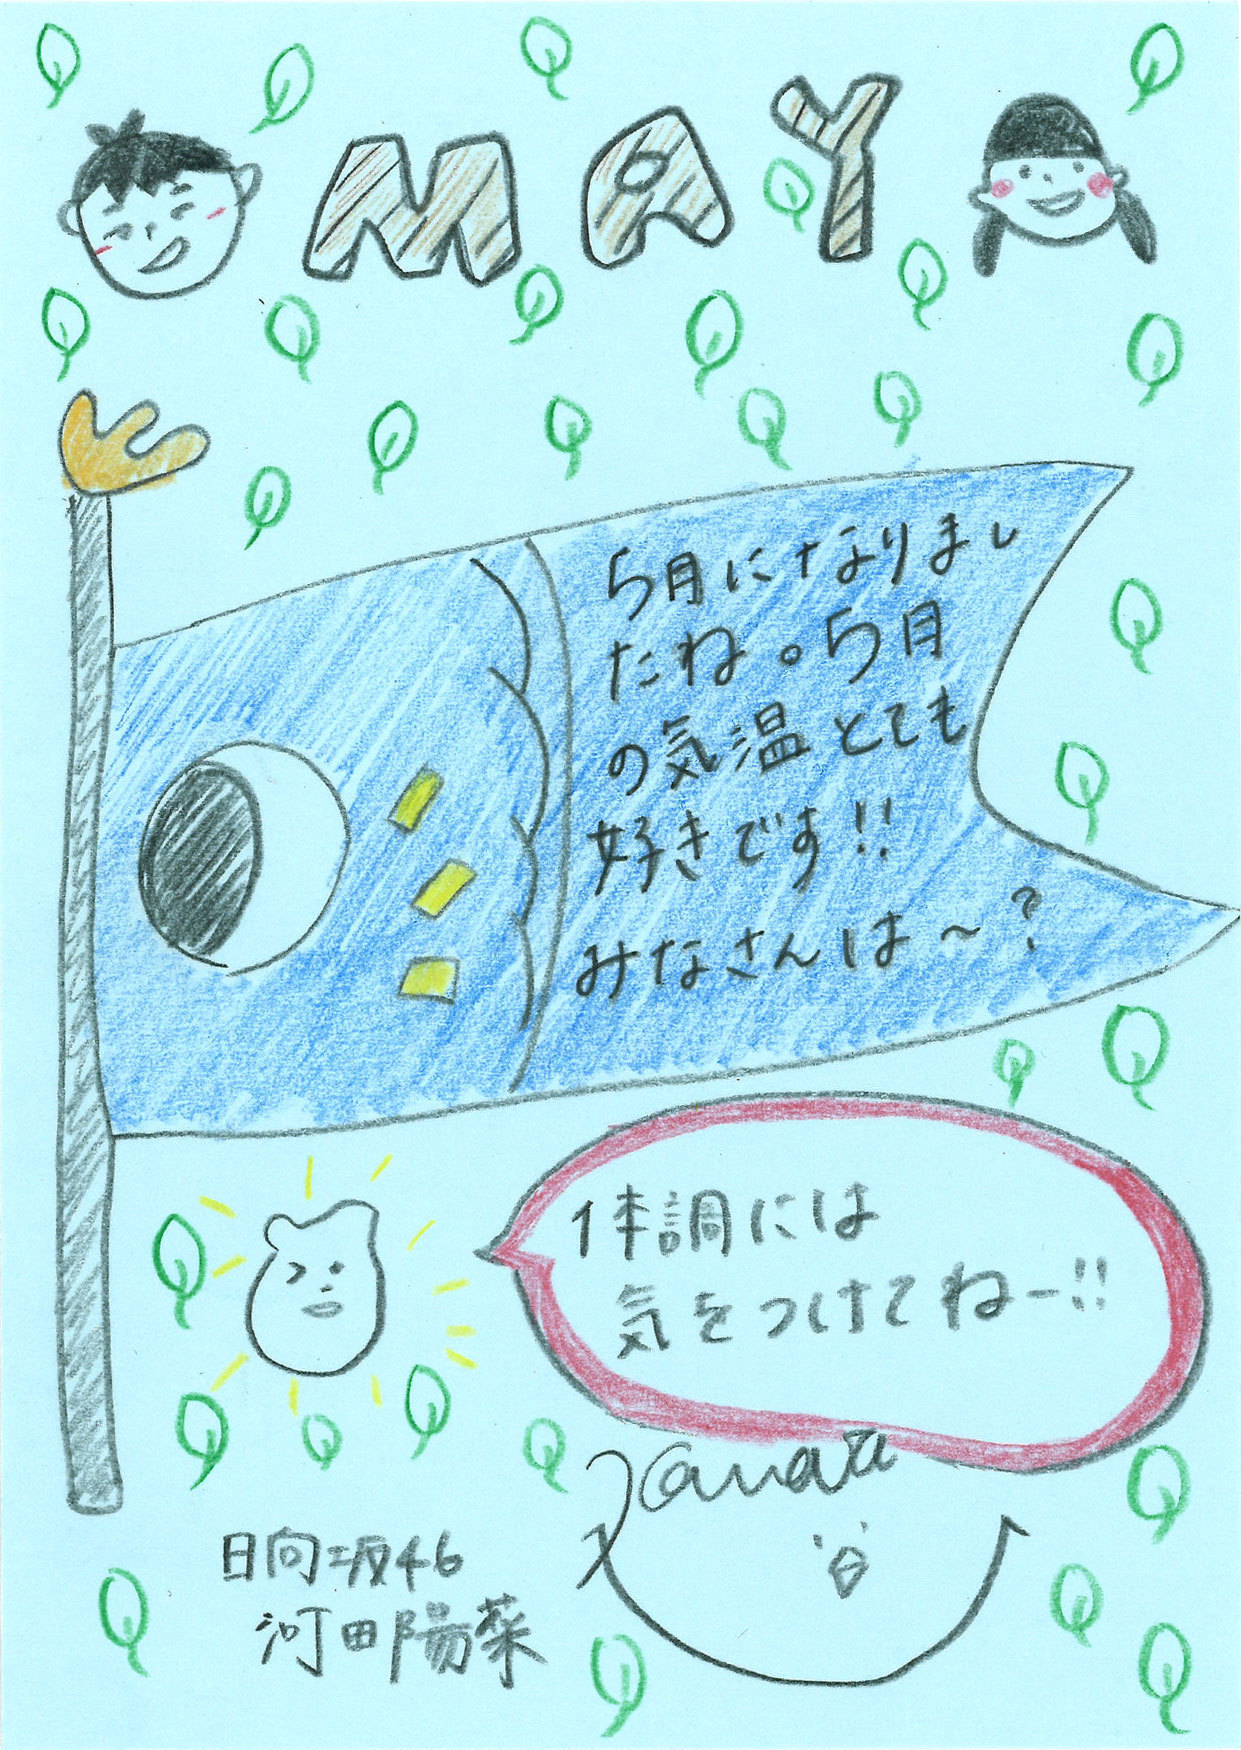 MAY
5月になりまし
たね。5月
の気温とても
好きです!!
みなさんは〜?
体調には
気をつけてねー!!
Kanata
日向坂46
河田陽菜